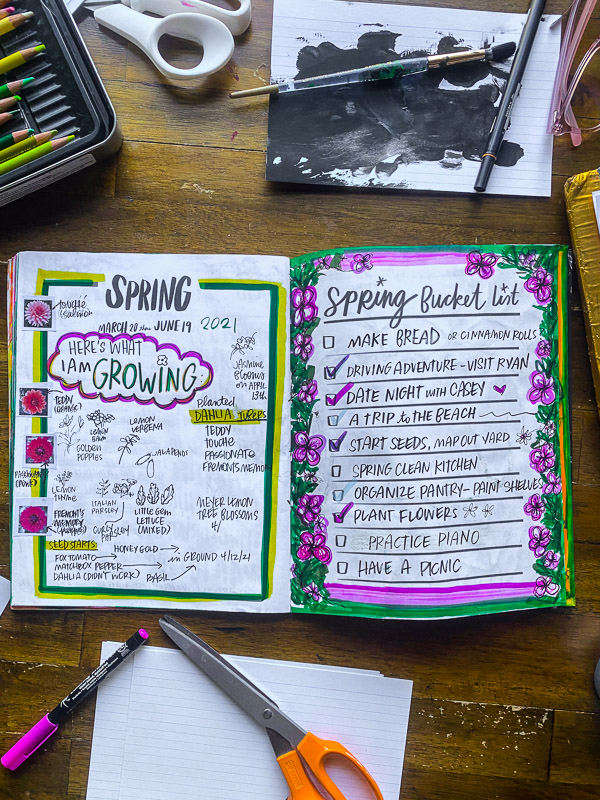 SPRING
MARCH 20 thru JUNE 19 2021
touché
HERE'S WHAT
I AM GROWING
JASMINE
BLOOMS
ON APRIL
13th
TEDDY
planted
DAHLIA TUBERS
TEDDY
TOUCHE
PASSIONATE
FREMONTS MEMORY
LEMON
BALM
LEMON
VERBENA
GOLDEN
POPPIES
JALAPENOS
LEMON
THYME
ITALIAN
PARSLEY
CURLY
PARSLEY
little Gem
LETTUCE
(MIXED)
MEYER LEMON
TREE BLOSSOMS
4/4
FREMONT'S
MEMORY
SEED STARTS:
HONEY GOLD
FOX TOMATO
in GROUND 4/12/21
MATCHBOX PEPPER
DAHLIA (DIDN'T WORK)
BASIL
Spring Bucket list
MAKE BREAD OR CINNAMON ROLLS
DRIVING ADVENTURE - VISIT RYAN
DATE NIGHT WITH CASEY
A TRIP to the BEACH
START SEEDS, MAP OUT YARD
SPRING CLEAN KITCHEN
ORGANIZE PANTRY - PAINT SHELVES
PLANT FLOWERS
PRACTICE PIANO
HAVE A PICNIC